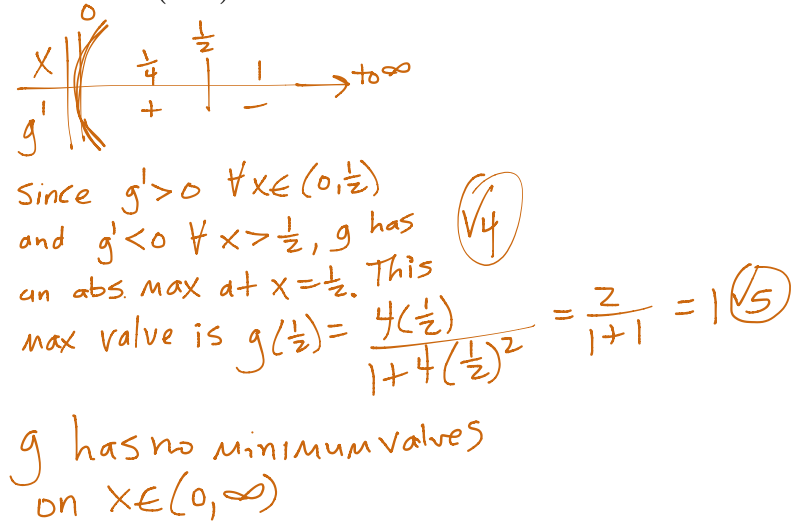 0
x 1/4 1/2 1 → to ∞
g' + -
Since g'>0 ∀ x∈(0,1/2)
and g'<0 ∀ x>1/2, g has √4
an abs. max at x=1/2. This
max value is g(1/2)= 4(1/2)/(1+4(1/2)^2) = 2/(1+1) = 1 √5
g has no minimum valves
on x∈(0,∞)